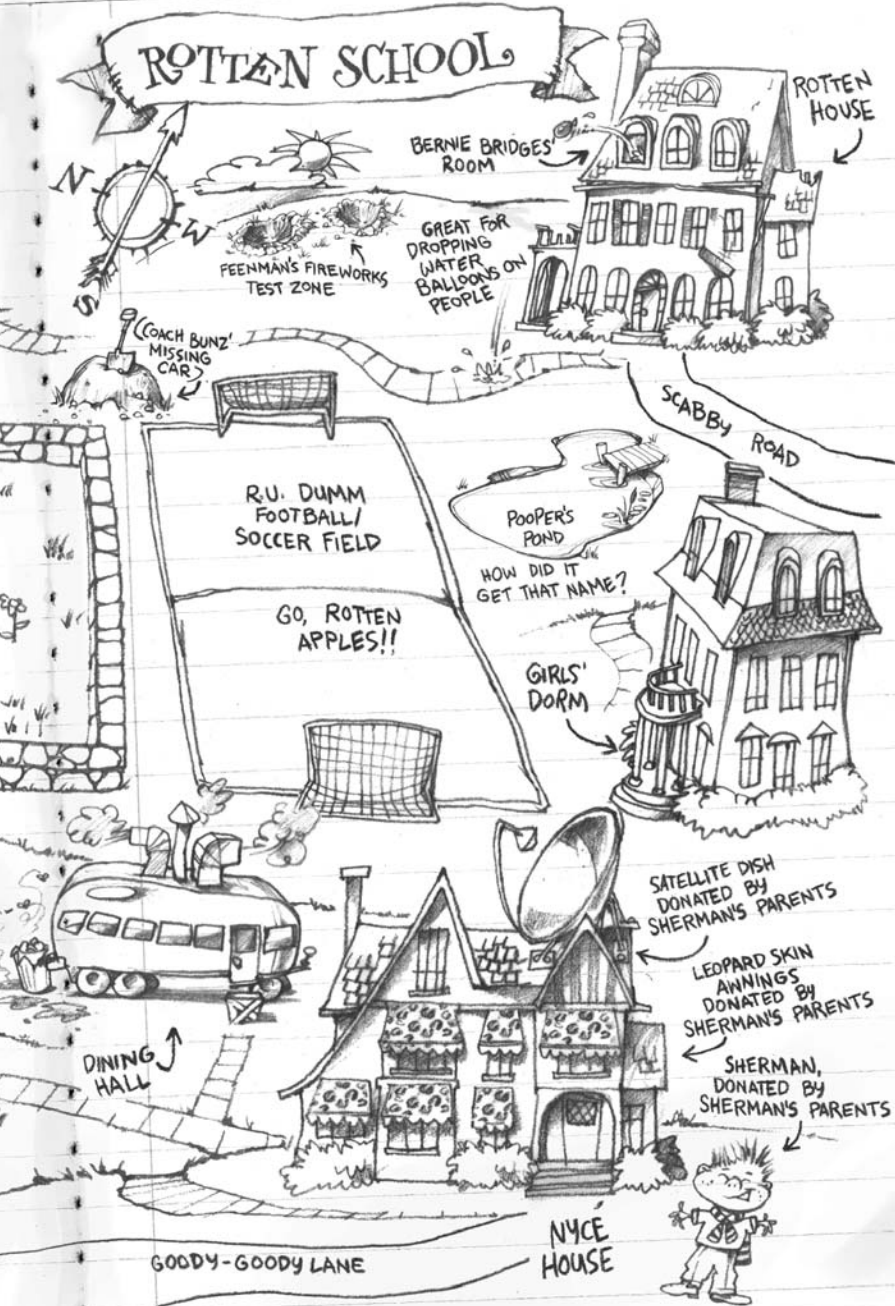 ROTTEN SCHOOL
ROTTEN
HOUSE
BERNIE BRIDGES'
ROOM
N
W
S
FEENMAN'S FIREWORKS
TEST ZONE
GREAT FOR
DROPPING
WATER
BALLOONS ON
PEOPLE
(COACH BUNZ'
MISSING
CAR)
SCABBY ROAD
R.U. DUMM
FOOTBALL/
SOCCER FIELD
POOPER'S
POND
HOW DID IT
GET THAT NAME?
GO, ROTTEN
APPLES!!
GIRLS'
DORM
SATELLITE DISH
DONATED BY
SHERMAN'S PARENTS
LEOPARD SKIN
AWNINGS
DONATED BY
SHERMAN'S PARENTS
DINING
HALL
SHERMAN,
DONATED BY
SHERMAN'S PARENTS
NYCE
HOUSE
GOODY-GOODY LANE